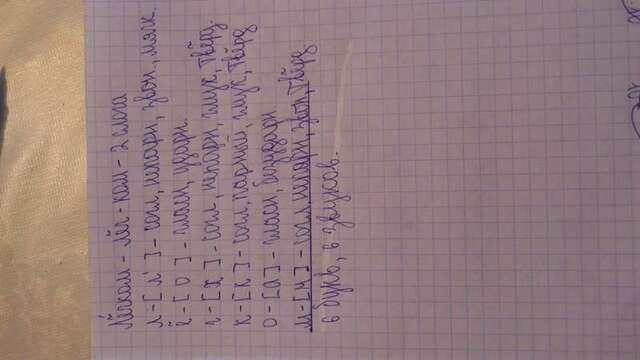 Лёгком - лёг-ком - 2 слога
л - [л'] - согл, непарн, звон, мягк.
ё - [о] - гласн, ударн.
г - [х] - согл, непарн, глух, твёрд
к - [к] - согл, парный, глух, твёрд
о - [а] - гласн, безударн
м - [м] - согл, непарн, звон, твёрд
6 букв, 6 звуков.